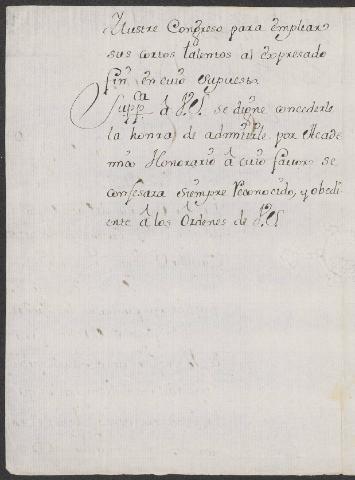 Ylustre Congreso para emplear
sus cortos talentos al expresado
fin en cuio supuesto
Supp.ca á V.S. se digne concederle
la honrra de admitirle por Acade-
mico Honorario á cuio favor se
confesara siempre Reconocido, y obedi-
ente á los Ordenes de V.S.